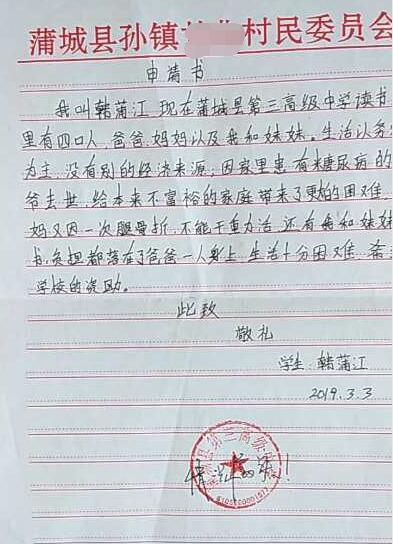 蒲城县孙镇 村民委员会
申请书
我叫韩蒲江 现在蒲城县第三高级中学读书
里有四口人，爸爸、妈妈以及我和妹妹。生活以务
为主，没有别的经济来源，因家里患有糖尿病的
爷去世，给本来不富裕的家庭带来了更大的困难，
妈又因一次腿骨折，不能干重力活，还有我和妹妹
书，负担都落在了爸爸一人身上，生活十分困难，希
学校的资助。
此致
敬礼
学生：韩蒲江
2019.3.3
情况属实！
县第三高级